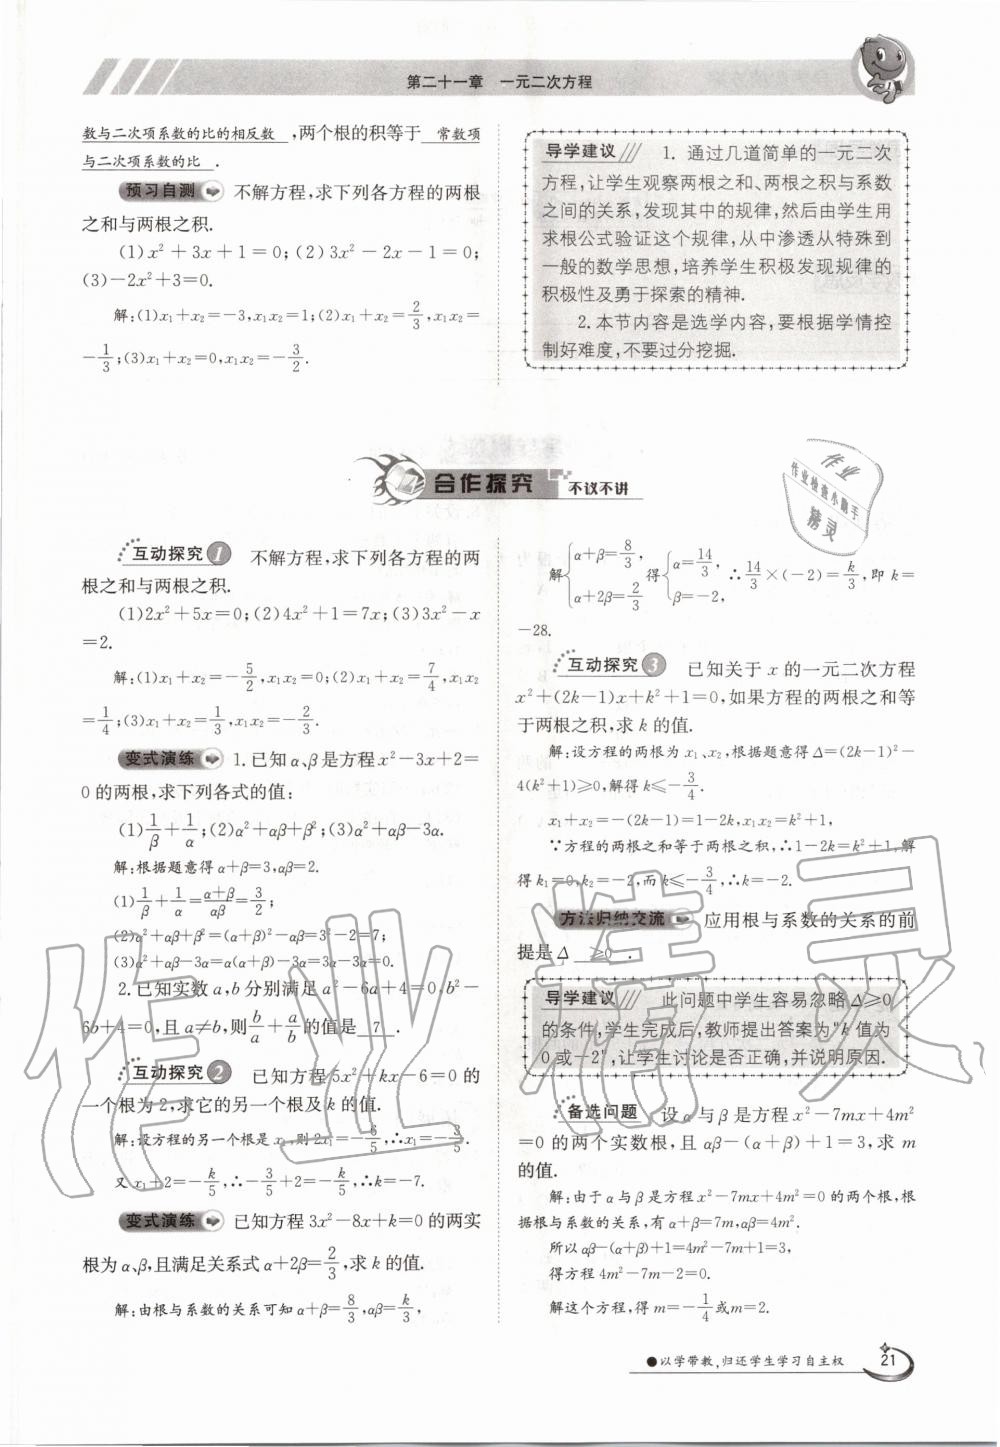 第二十一章 一元二次方程
数与二次项系数的比的相反数,两个根的积等于 常数项
与二次项系数的比 .
预习自测 不解方程,求下列各方程的两根
之和与两根之积.
(1)x²+3x+1=0;(2)3x²-2x-1=0;
(3)-2x²+3=0.
解:(1)x₁+x₂=-3,x₁x₂=1;(2)x₁+x₂=2/3,x₁x₂=
-1/3;(3)x₁+x₂=0,x₁x₂=-3/2.
导学建议 1. 通过几道简单的一元二次
方程,让学生观察两根之和、两根之积与系数
之间的关系,发现其中的规律,然后由学生用
求根公式验证这个规律,从中渗透从特殊到
一般的数学思想,培养学生积极发现规律的
积极性及勇于探索的精神.
2. 本节内容是选学内容,要根据学情控
制好难度,不要过分挖掘.
合作探究 不议不讲
互动探究1 不解方程,求下列各方程的两
根之和与两根之积.
(1)2x²+5x=0;(2)4x²+1=7x;(3)3x²-x
=2.
解:(1)x₁+x₂=-5/2,x₁x₂=0;(2)x₁+x₂=7/4,x₁x₂
=1/4;(3)x₁+x₂=1/3,x₁x₂=-2/3.
变式演练 1.已知α、β是方程x²-3x+2=
0的两根,求下列各式的值:
(1)1/β+1/α;(2)α²+αβ+β²;(3)α²+αβ-3α.
解:根据题意得α+β=3,αβ=2.
(1)1/β+1/α=(α+β)/αβ=3/2;
(2)α²+αβ+β²=(α+β)²-αβ=3²-2=7;
(3)α²+αβ-3α=α(α+β)-3α=3α-3α=0.
2.已知实数a,b分别满足a²-6a+4=0,b²-
6b+4=0,且a≠b,则b/a+a/b的值是 7 .
互动探究2 已知方程5x²+kx-6=0的
一个根为2,求它的另一个根及k的值.
解:设方程的另一个根是x₁,则2x₁=-6/5,∴x₁=-3/5.
又x₁+2=-k/5,∴-3/5+2=-k/5,∴k=-7.
变式演练 已知方程3x²-8x+k=0的两实
根为α、β,且满足关系式α+2β=2/3,求k的值.
解:由根与系数的关系可知α+β=8/3,αβ=k/3,
解{α+β=8/3, α+2β=2/3 得{α=14/3, β=-2, ∴14/3×(-2)=k/3,即k=
-28.
互动探究3 已知关于x的一元二次方程
x²+(2k-1)x+k²+1=0,如果方程的两根之和等
于两根之积,求k的值.
解:设方程的两根为x₁、x₂,根据题意得Δ=(2k-1)²-
4(k²+1)≥0,解得k≤-3/4.
x₁+x₂=-(2k-1)=1-2k,x₁x₂=k²+1,
∵方程的两根之和等于两根之积,∴1-2k=k²+1,解
得k₁=0,k₂=-2,而k≤-3/4,∴k=-2.
方法归纳交流 应用根与系数的关系的前
提是Δ ≥0 .
导学建议 此问题中学生容易忽略Δ≥0
的条件,学生完成后,教师提出答案为"k值为
0或-2",让学生讨论是否正确,并说明原因.
备选问题 设α与β是方程x²-7mx+4m²
=0的两个实数根,且αβ-(α+β)+1=3,求m
的值.
解:由于α与β是方程x²-7mx+4m²=0的两个根,根
据根与系数的关系,有α+β=7m,αβ=4m².
所以αβ-(α+β)+1=4m²-7m+1=3,
得方程4m²-7m-2=0.
解这个方程,得m=-1/4或m=2.
●以学带教,归还学生学习自主权 21
作业
作业检查小助手
精灵
作业精灵